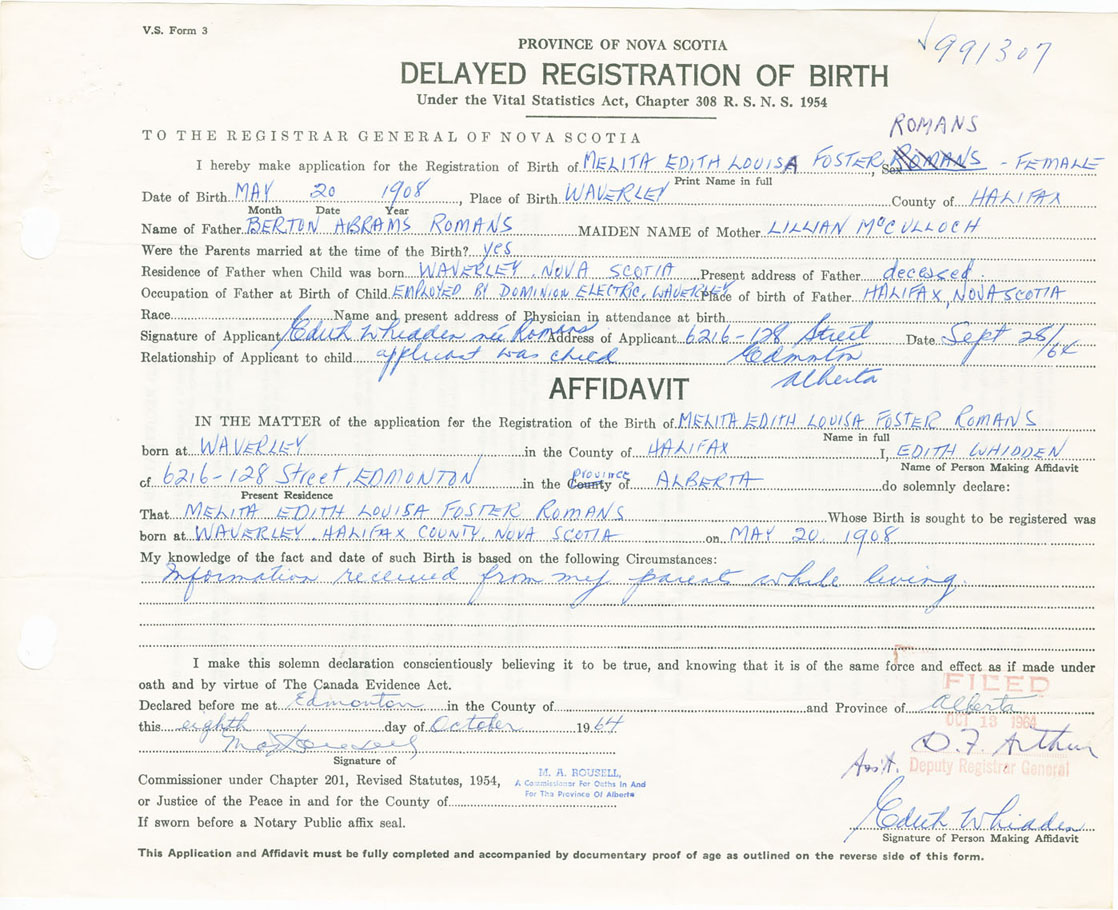 V.S. Form 3
991307
PROVINCE OF NOVA SCOTIA
DELAYED REGISTRATION OF BIRTH
Under the Vital Statistics Act, Chapter 308 R. S. N. S. 1954
TO THE REGISTRAR GENERAL OF NOVA SCOTIA
ROMANS
I hereby make application for the Registration of Birth of MELITA EDITH LOUISA FOSTER ROMANS, Sex - FEMALE
Print Name in full
Date of Birth MAY 20 1908, Place of Birth WAVERLEY County of HALIFAX
Month Date Year
Name of Father BERTON ABRAMS ROMANS MAIDEN NAME of Mother LILLIAN McCULLOCH
Were the Parents married at the time of the Birth? yes
Residence of Father when Child was born WAVERLEY, NOVA SCOTIA Present address of Father decesed.
Occupation of Father at Birth of Child EMPLOYED BY DOMINION ELECTRIC, WAVERLEY Place of birth of Father HALIFAX, NOVA SCOTIA
Race Name and present address of Physician in attendance at birth
Signature of Applicant Edith Whidden née Romans Address of Applicant 6216-128 Street Date Sept 28/64
Relationship of Applicant to child applicant was child Edmonton
Alberta
AFFIDAVIT
IN THE MATTER of the application for the Registration of the Birth of MELITA EDITH LOUISA FOSTER ROMANS
Name in full
born at WAVERLEY in the County of HALIFAX I, EDITH WHIDDEN
Name of Person Making Affidavit
of 6216-128 Street, EDMONTON in the County province of ALBERTA do solemnly declare:
Present Residence
That MELITA EDITH LOUISA FOSTER ROMANS Whose Birth is sought to be registered was
born at WAVERLEY, HALIFAX COUNTY, NOVA SCOTIA on MAY 20, 1908
My knowledge of the fact and date of such Birth is based on the following Circumstances:
Information received from my parents while living.
I make this solemn declaration conscientiously believing it to be true, and knowing that it is of the same force and effect as if made under
oath and by virtue of The Canada Evidence Act.
FILED
Declared before me at Edmonton in the County of and Province of Alberta
this eighth day of October 1964
OCT 13 1964
D. F. Arthur
Signature of
Ass't. Deputy Registrar General
Commissioner under Chapter 201, Revised Statutes, 1954,
M. A. ROUSELL,
A Commissioner For Oaths In And
For The Province Of Alberta
or Justice of the Peace in and for the County of
If sworn before a Notary Public affix seal.
Edith Whidden
Signature of Person Making Affidavit
This Application and Affidavit must be fully completed and accompanied by documentary proof of age as outlined on the reverse side of this form.